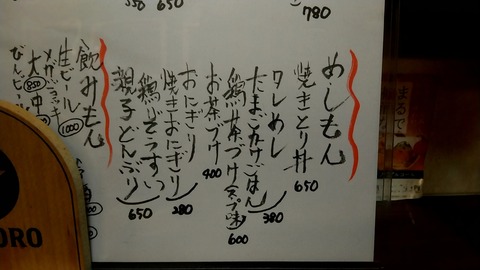 780
650
めしもん
焼きとり丼 650
タレめし
たまごかけごはん 380
鶏茶づけ 600
お茶づけ 400
おにぎり
焼きおにぎり 280
鶏ぞうすい
親子どんぶり 650
飲みもん
生ビール
メガジョッキ 1000
大 850 中
びんビール
ORO